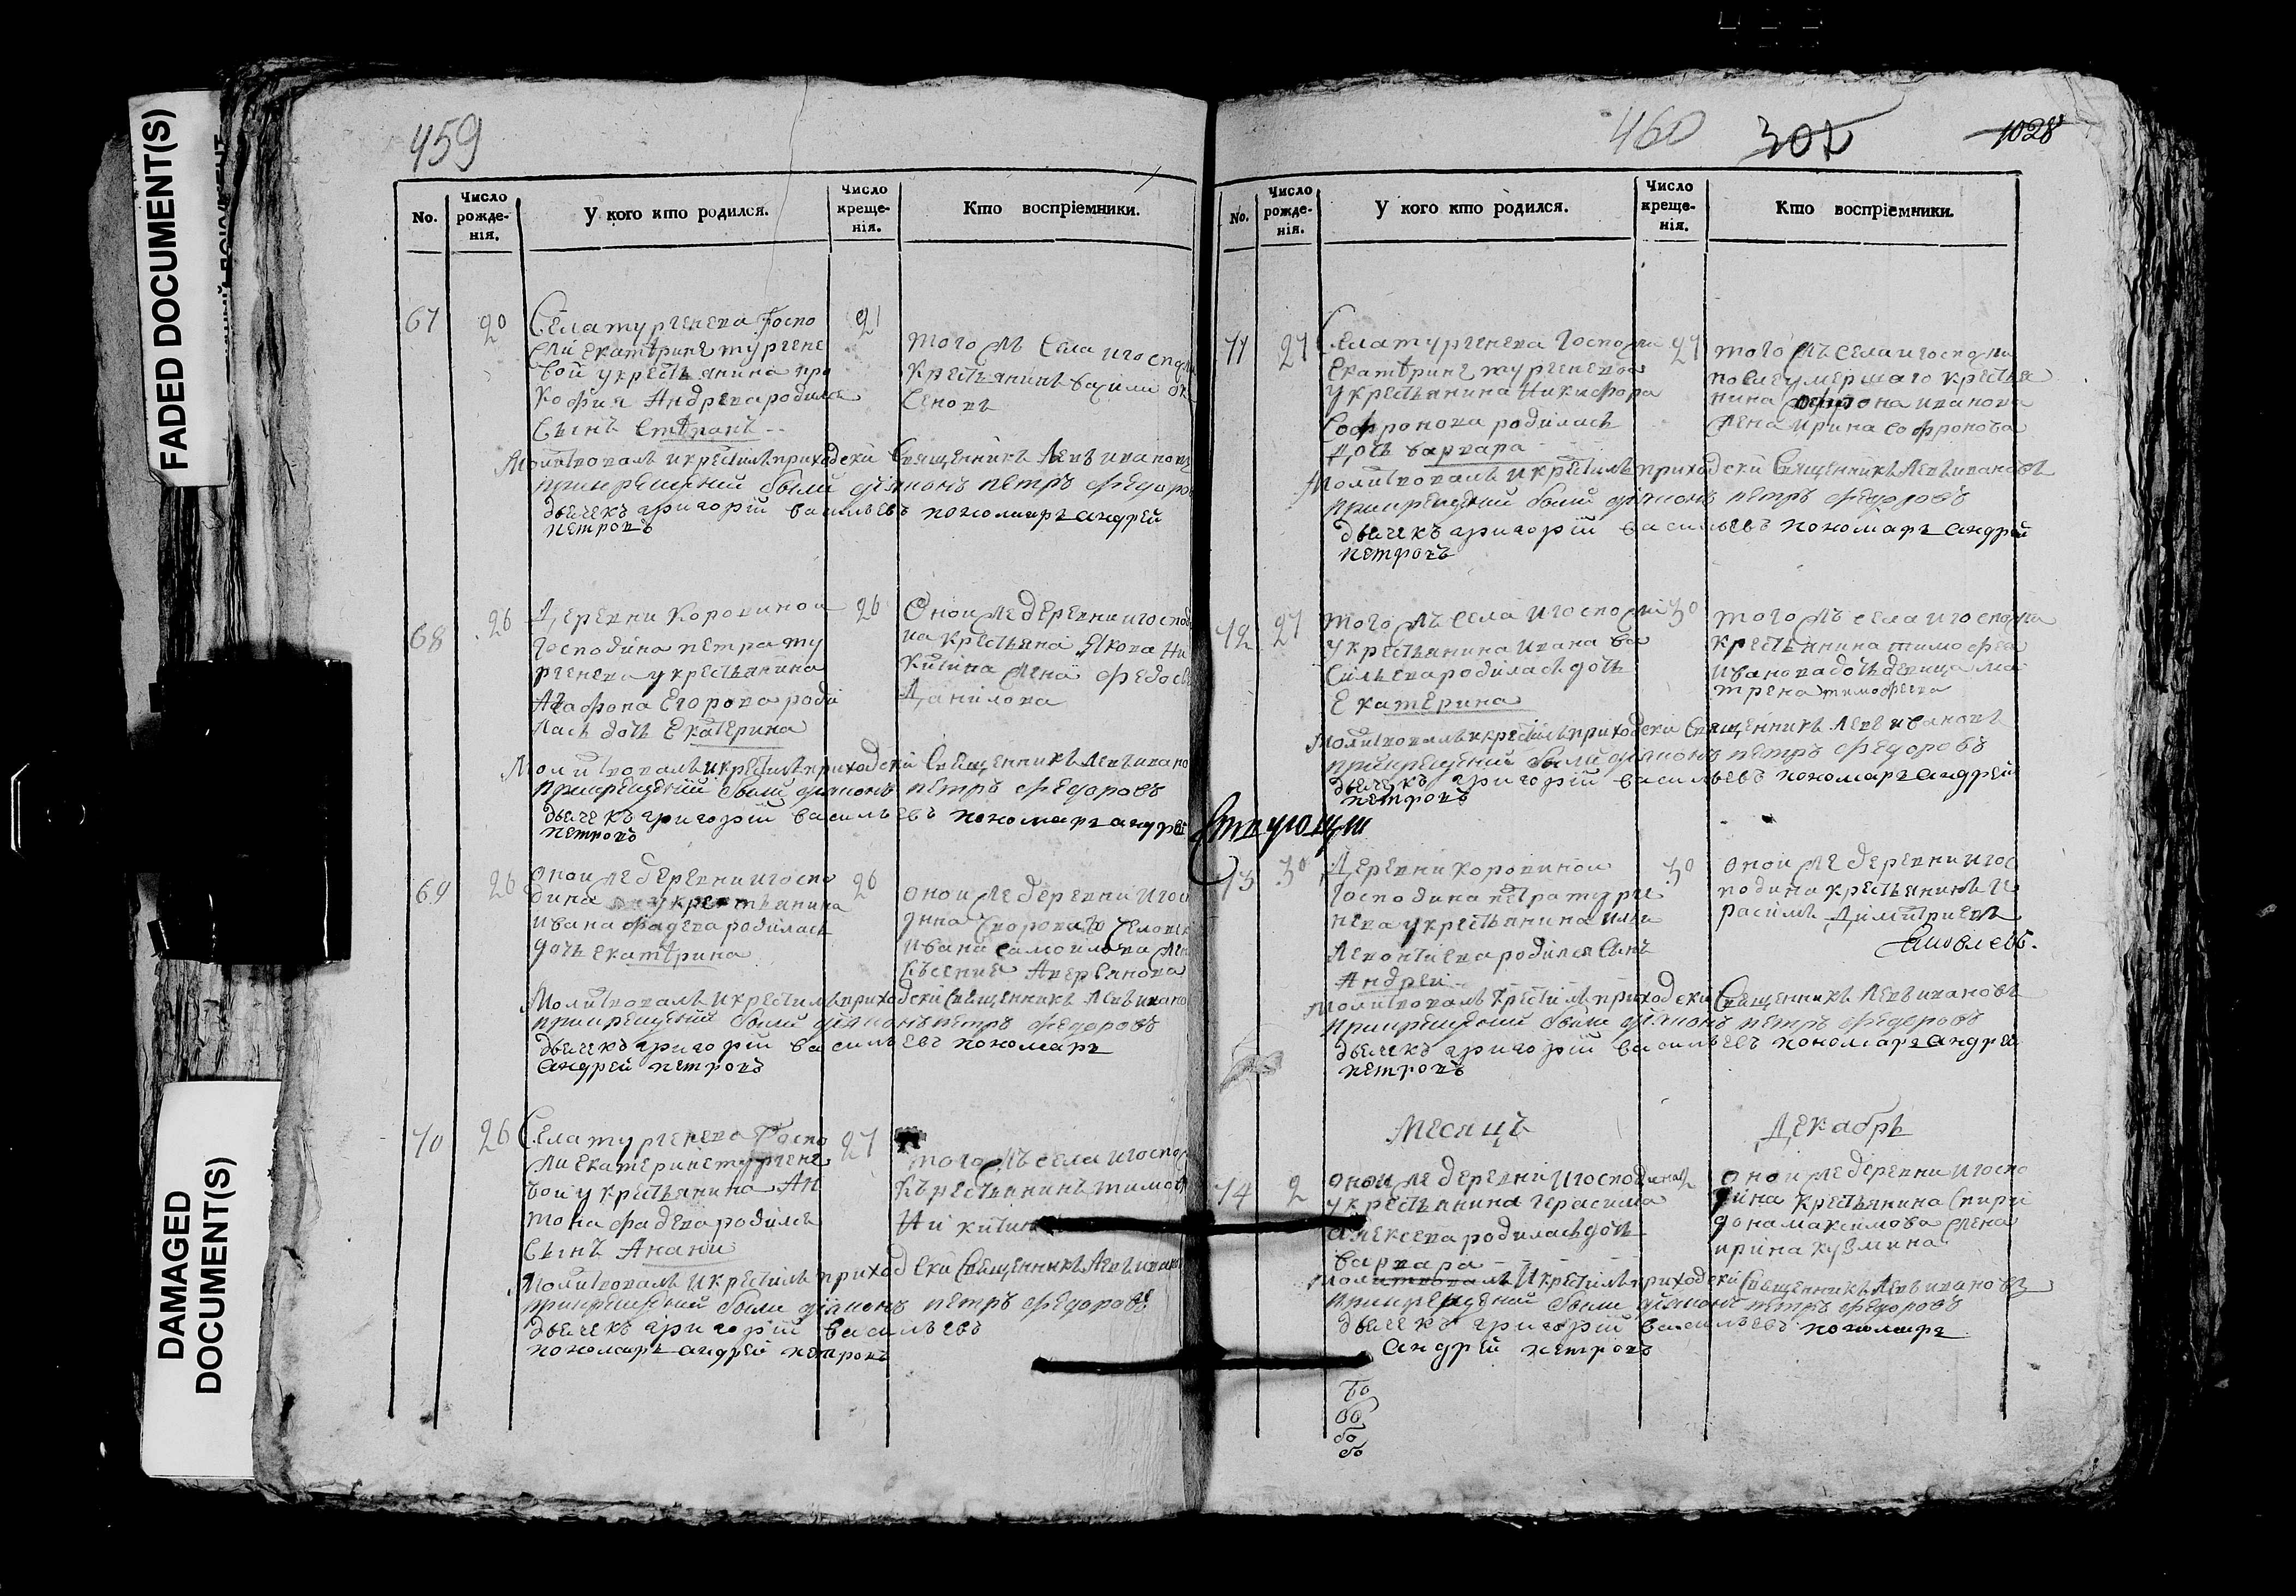 FADED DOCUMENT(S)
DAMAGED
DOCUMENT(S)
459
No.
Число
рожде-
нія.
У кого кто родился.
Число
креще-
нія.
Кто воспріемники.
67
20
Села тургенева Госпо
жи екатѣрине тургене
вой у крестьянина про
кофия Андреева родился
Сынъ Стѣпанъ
21
того жъ Села и господи
Крестьянинъ васили
Молитвовалъ и крестилъ приходски Священникъ Левъ иванов
при крещении были диаконъ петръ федоров
дьячекъ григорій васильевъ пономарь андрей
петровъ
68
26
Деревни коровиной
Господина петра ту
ргенева у крестьянина
Агафона Егорова роди
лась дочь Екатерина
26
Оной же деревни и господ
на крестьяна Якова Ни
китина жена федось
Данилова
Молитвовалъ и крестилъ приходски Священникъ Левъ ивано
при крещении были диаконъ петръ федоровъ
дьячекъ григорій васильевъ пономарь андрей
петровъ
69
26
оной же деревни и госпо
дина у крестьянина
ивана фадева родилась
дочь екатѣрина
26
оной же деревни и госп
ивана самоилова жен
Ксение Аверьянова
Молитвовалъ и крестилъ приходски Священникъ Левъ ивано
при крещении были диаконъ петръ федоровъ
дьячекъ григорій васильевъ пономарь
андрей петровъ
70
26
Села тургенева Госпо
жи екатерине тургене
вой у крестьянина Ан
тона фадева родился
Сынъ Анани
27
того жъ села и госпо
Кърестьянинъ тимоф
Ни китин
Молитвовалъ и крестилъ приходски Священникъ Левъ иванов
при крещении были диаконъ петръ федоровъ
дьячекъ григорій васильевъ
пономарь андрей петровъ
460
302
1028
No.
Число
рожде-
нія.
У кого кто родился.
Число
креще-
нія.
Кто воспріемники.
71
27
Села тургенева Госпожи
Екатѣрине тургеневой
у крестьянина Никифора
Софронова родилась
дочь варвара
27
того жъ села и господи
после умершаго крестья
нина софрона иванова
жена Ирина софронова
Молитвовалъ и крестилъ приходски Священникъ Левъ ивановъ
при крещении были диаконъ петръ федоровъ
дьячекъ григорій васильевъ пономарь андрей
петровъ
72
27
того жъ села и госпожи
у крестьянина Ивана Ва
сильева родилась дочь
Екатерина
30
того жъ села и господи
крестьянина тимофеа
иванова дочь девица ма
трена тимофеева
Молитвовалъ и крестилъ приходски Священникъ Левъ ивановъ
при крещении были диаконъ петръ федоровъ
дьячекъ григорій васильевъ пономарь андрей
петровъ
73
30
Деревни коровиной
Господина пѣтра турге
нева у крестьянина ильи
Леонтиева родился Сынъ
Андрей
30
оной же деревни и гос
подина крестьянинъ Ге
расимъ Димитриевъ
Яковлевъ.
Молитвовалъ крестилъ приходски Священникъ Левъ ивановъ
при крещении были диаконъ петръ федоровъ
дьячекъ григорій васильевъ пономарь андрей
петровъ
Месяцъ Декабрь
74
2
оной же деревни и господина
у крестьянина Герасима
алексеева родилась дочь
варвара
2
оной же деревни и госпо
дина крестьянина Спири
дона максимова жена
ирина кузмина
Молитвовалъ и крестилъ приходски Священникъ Левъ ивановъ
при крещении были диаконъ петръ федоровъ
дьячекъ григорій васильевъ пономарь
андрей петровъ